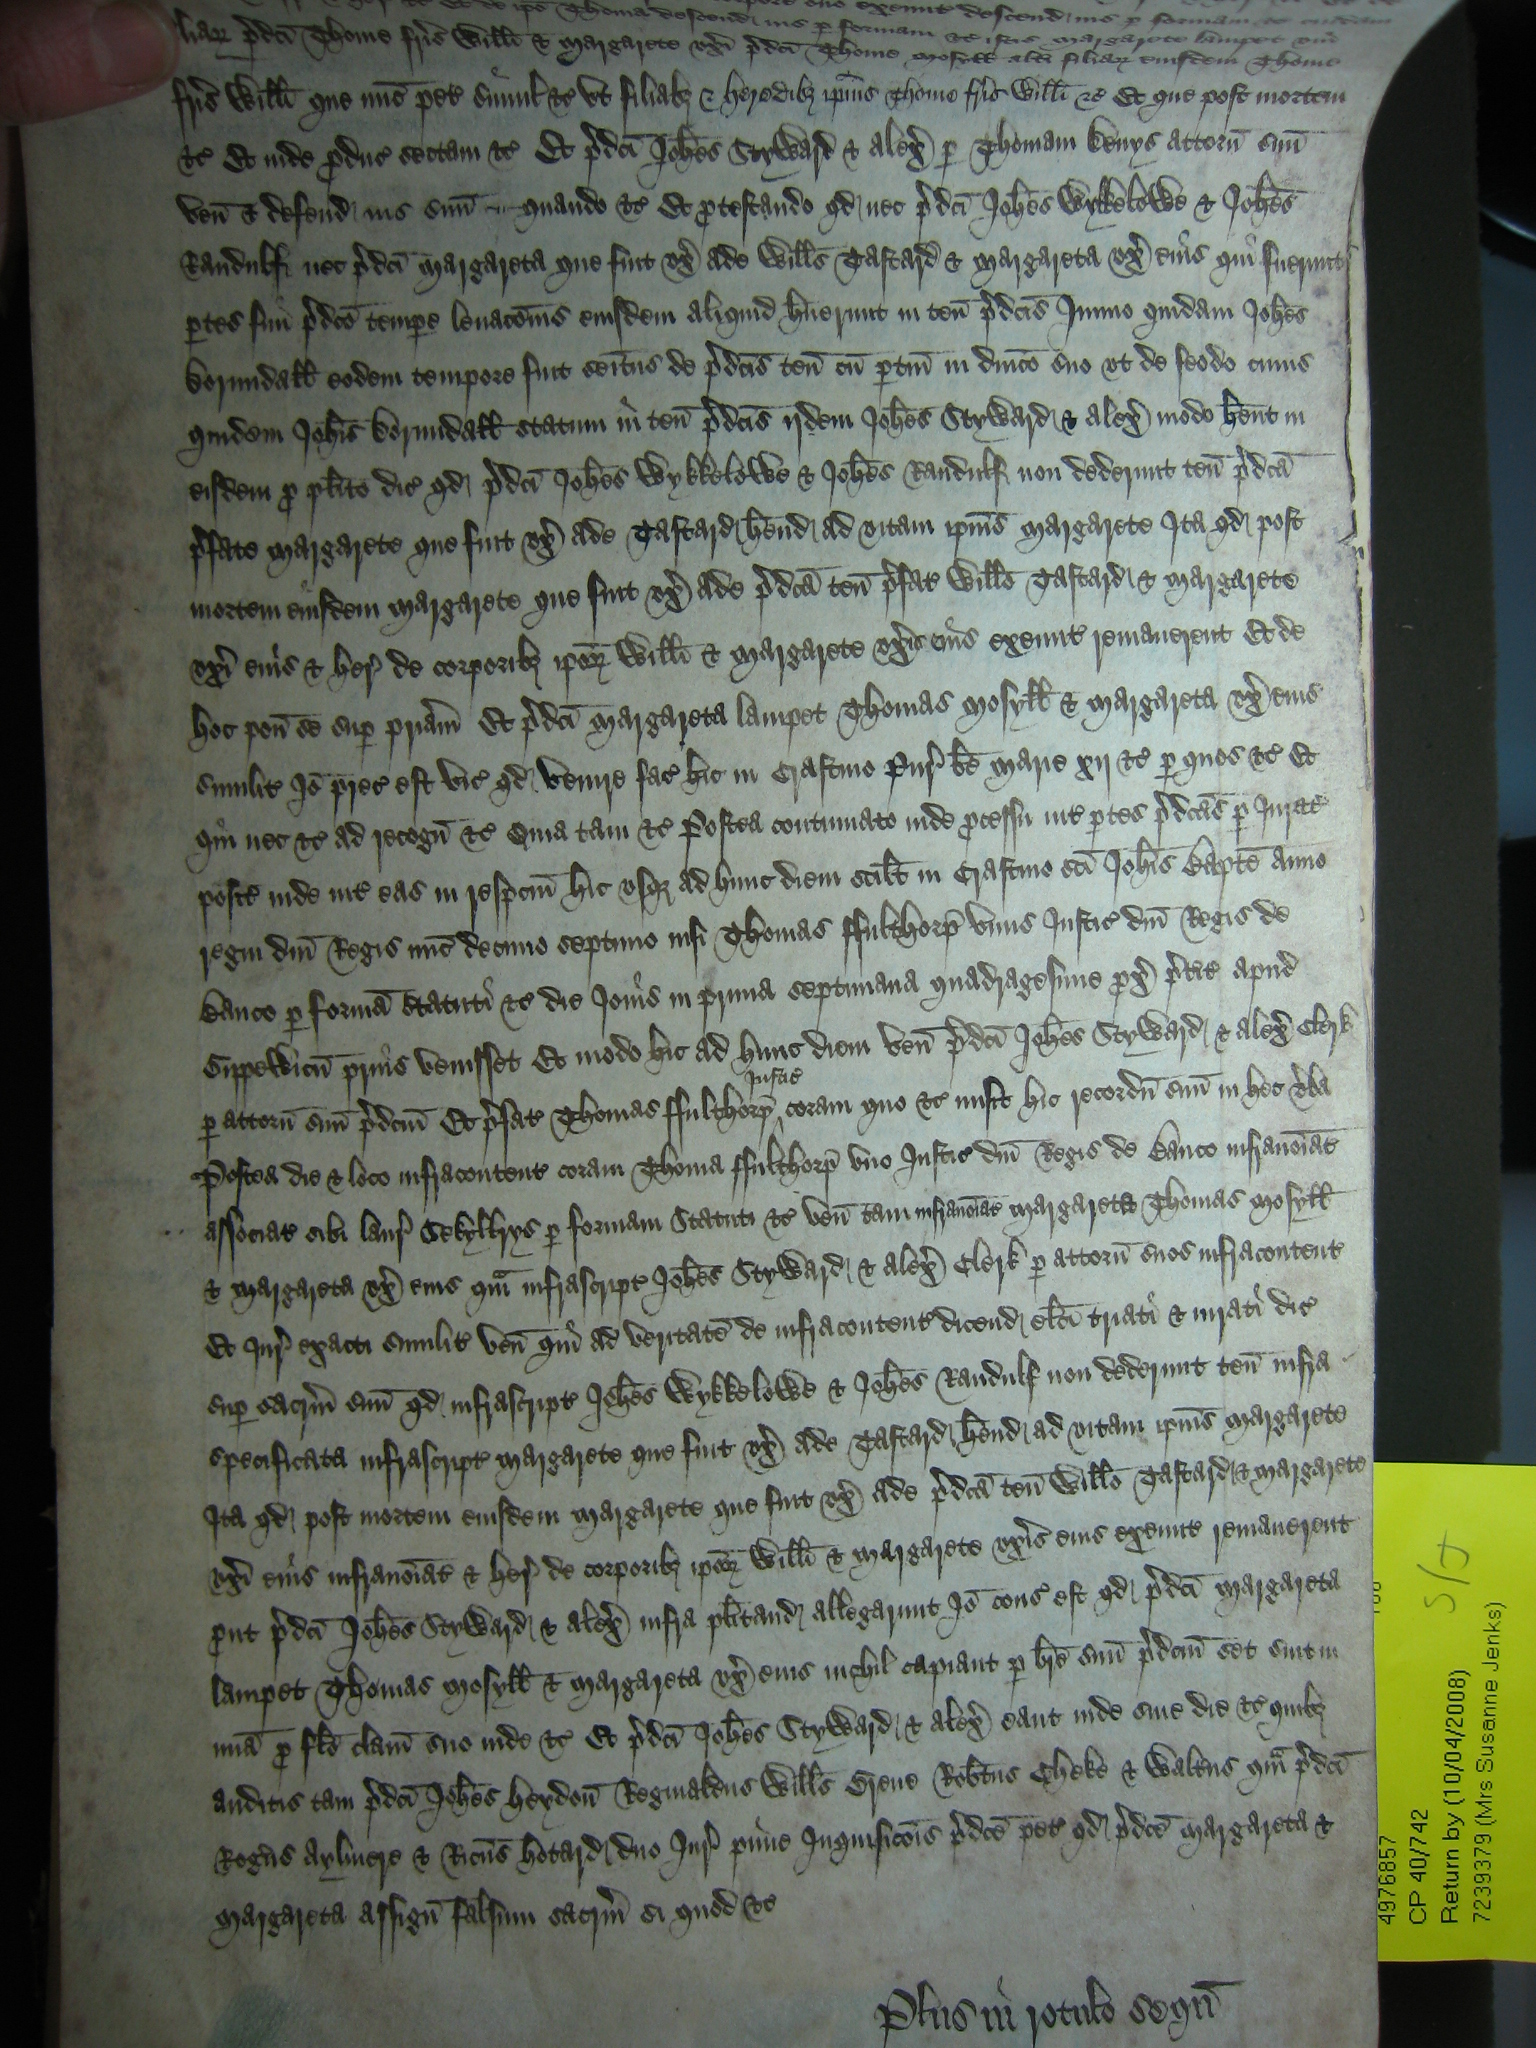 liar p̄dc̄i Thome fr̄is Willi & Margarete vx̄i p̄dc̄i Thome Mosyll alt̄i filiar eiusdem Thome
fr̄is Willi que nūc pet simul &c vt filiabȝ & heredibȝ ip̄ius Thome fr̄is Willi &c Et que post mortem
&c Et inde p̄duc sectam &c Et p̄dc̄i Joh̄es Styward & Alex̄ p Thomam Kenys attorn̄ suū
ven̄ & defend ius suū quando &c Et p̄testando qd nec p̄dc̄i Joh̄es Wykkelowe & Joh̄es
Randulff nec p̄dc̄a Margareta que fuit vx̄ Ade Will̄s Tastard & Margareta vx̄ eius qui fuerunt
p̄tes fini p̄dc̄o tempe leuac̄onis eiusdem aliquid h̄uerunt in ten̄ p̄dc̄is Immo quidam Joh̄es
Borundall eodem tempore fuit seit̄us de p̄dc̄is ten̄ cū ptin̄ in dn̄ico suo vt de feodo cuius
quidem Joh̄is Borundall statum in ten̄ p̄dc̄is ijdem Joh̄es Styward & Alex̄ modo h̄ent in
eisdem p̄ pl̄ito dic qd p̄dc̄i Joh̄es Wykkelowe & Joh̄es Randulff non dederunt ten̄ p̄dc̄a
p̄fate Margarete que fuit vx̄ Ade Tastard h̄end ad vitam ip̄ius Margarete Ita qd post
mortem eiusdem Margarete que fuit vx̄ Ade p̄dc̄a ten̄ p̄fat Will̄o Tastard & Margarete
vx̄i eius & her̄ de corporibȝ ip̄oȝ Willi & Margarete vx̄is eius exeunt remanerent Et de
hoc pon̄ se sup pr̄iam Et p̄dc̄i Margareta lampet Thomas Mosyll & Margareta vx̄ eius
similit Iō prec̄ est vic qd venire fac hic in Crastino Pur̄ be Marie xij &c p quos &c Et
qui nec &c ad recogn̄ &c Quia tam &c Postea continuato inde p̄cessu int ptes p̄dc̄as p Jurat
posit inde int eas in respc̄m hic vsqȝ ad hunc diem scil̄t in Crastino sc̄i Joh̄is Bapt̄e anno
regni dn̄i Regis nūc decimo septimo nisi Thomas ffulthorp̄ vnus Justic dn̄i Regis de
Banco p formā statuti &c die Jouis in prima septimana quadragesime p̄x̄ p̄t̄it apud
Gippewicū prius venisset Et modo hic ad hunc diem ven̄ p̄dc̄i Joh̄es Styward & Alex̄ Clerk
p attorn̄ suū p̄dc̄m Et p̄fat Thomas ffulthorp̄ Justic coram quo &c misit hic recordū suū in hec v̄ba
Postea die & loco infracontent coram Thoma ffulthorp̄ vno Justic dn̄i Regis de Banco infranoīat
associat sibi laur̄ Sekyllrys p formam Statuti &c ven̄ tam infranoīat Margareta Thomas Mosyll
& Margareta vx̄ eius qm̄ infrascript Joh̄es Styward & Alex̄ Clerk p attorn̄ suos infracontent
Et Jur̄ exacti similit ven̄ qui ad veritatē de infracontent dicend elc̄i triati & iurati dic
sup sacr̄m suū qd infrascript Joh̄es Wykkelowe & Joh̄es Randulff non dederunt ten̄ infra
specificata infrascript Margarete que fuit vx̄ Ade Tastard h̄end ad vitam ip̄ius Margarete
Ita qd post mortem eiusdem Margarete que fuit vx̄ Ade p̄dc̄a ten̄ Will̄o Tastard & Margarete
vx̄i eius infranoīat & her̄ de corporibȝ ip̄oȝ Willi & Margarete vx̄is eius exeunt remanerent
p̄ut p̄dc̄i Joh̄es Styward & Alex̄ infra pl̄itand allegarunt Iō cons̄ est qd p̄dc̄i Margareta
lampet Thomas Mosyll & Margareta vx̄ eius nichil capiant p br̄e suū p̄dc̄m set sint in
mīa p̄ fl̄o clam̄ suo inde &c Et p̄dc̄i Joh̄es Styward & Alex̄ eant inde sine die &c quibȝ
auditis tam p̄dc̄i Joh̄es heydon̄ Reginaldus Will̄s Grene Rob̄tus Cheke & Walt̄us qm̄ p̄dc̄i
Roḡus Aylmere & Ric̄us hotard duo Jur̄ pime Inquisic̄ois p̄dc̄e pet qd p̄dc̄e Margareta &
Margareta assign̄ falsum sacr̄m si quod &c
Plus in rotulo sequn̄
S/J
4976857
CP 40/742
Return by (10/04/2008)
7239379 (Mrs Susanne Jenks)